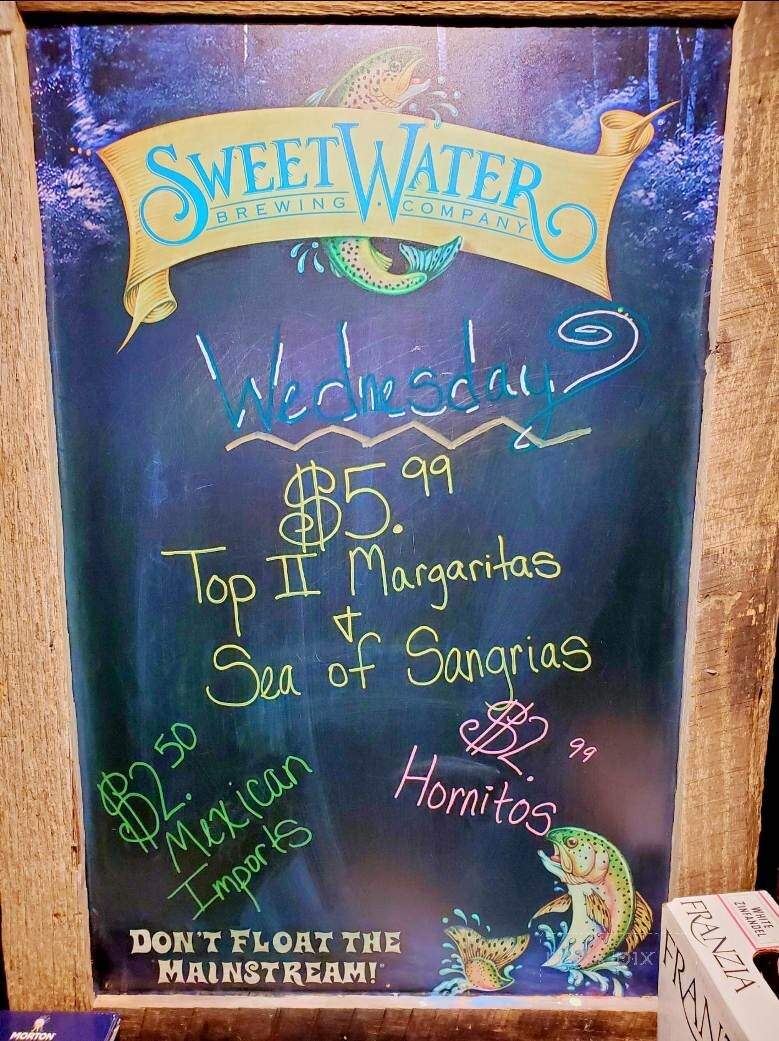 SWEETWATER
BREWING COMPANY
Wednesday
$5.99
Top II Margaritas
&
Sea of Sangrias
$2.50
Mexican
Imports
$2.99
Hornitos
DON'T FLOAT THE
MAINSTREAM!
WHITE
ZINFANDEL
FRANZIA
MORTON